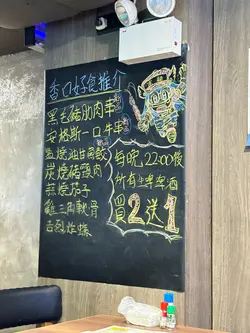 香口好食推介
黑毛豬肋肉串
安格斯一口牛串
鹽燒油甘魚鮫
炭燒豬頸肉
蒜燒茄子
雞三角軟骨
吉列炸蠔
每晚22:00後
所有生啤啤酒
買2送1